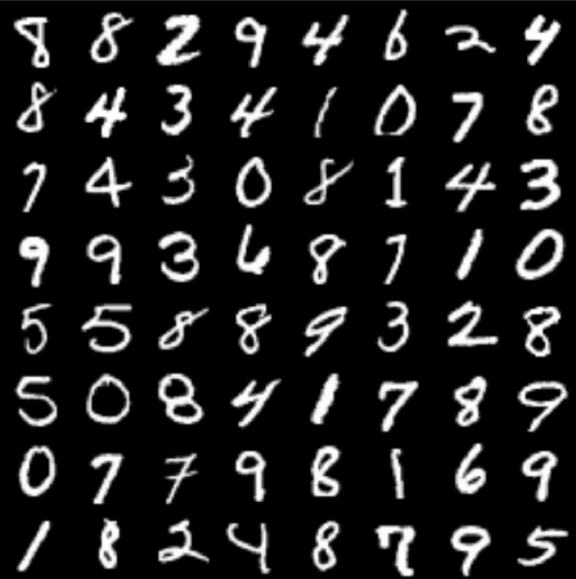 8 8 2 9 4 6 2 4
8 4 3 4 1 0 7 8
7 4 3 0 8 1 4 3
9 9 3 6 8 7 1 0
5 5 8 8 9 3 2 8
5 0 8 4 1 7 8 9
0 7 7 9 8 1 6 9
1 8 2 4 8 7 9 5